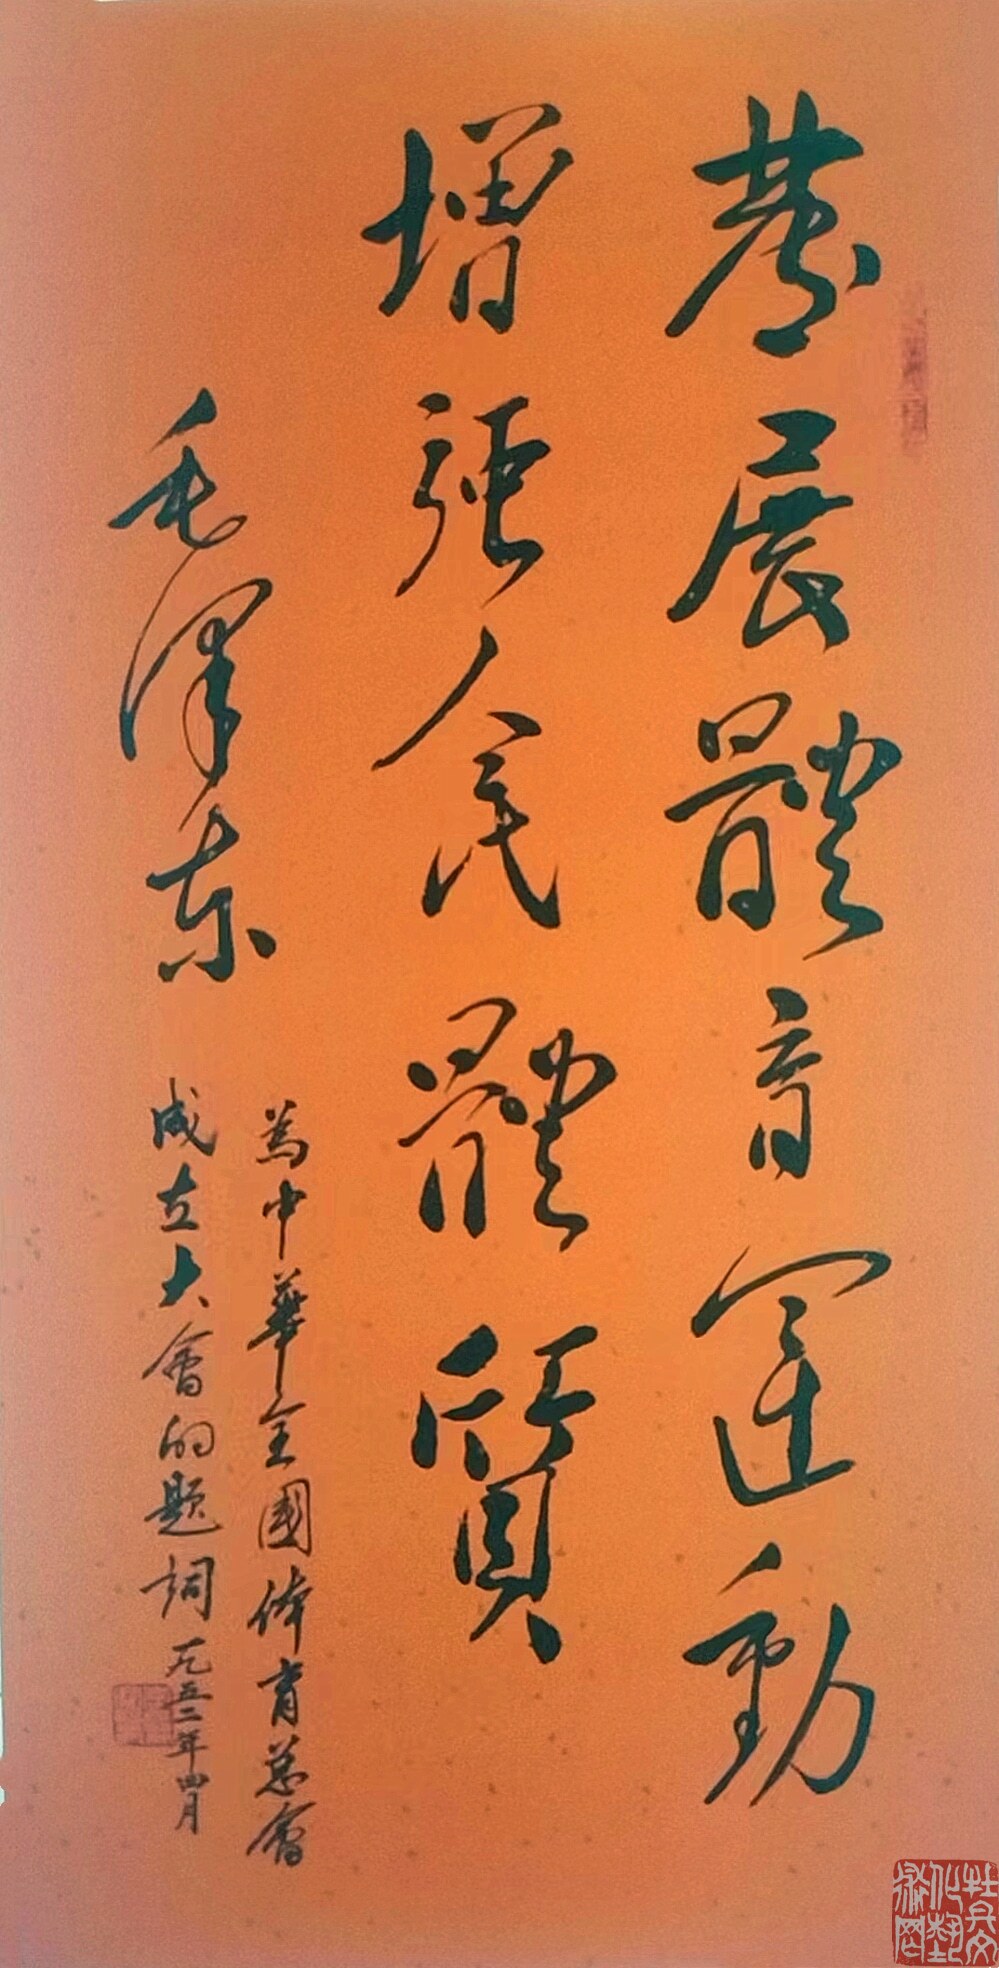 發展體育運動
增強人民體質
毛澤东
為中華全國体育总會
成立大會的题詞一九五二年四月